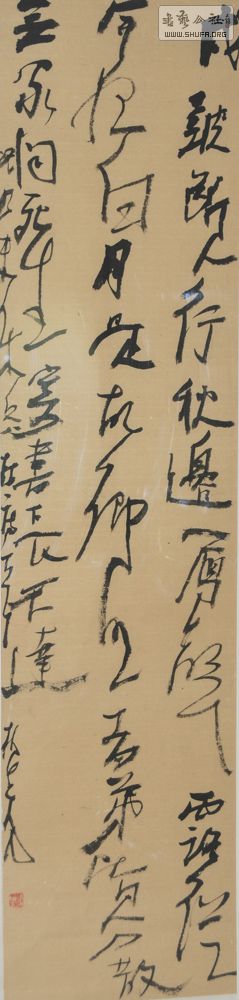 書藝公社
WWW.SHUFA.ORG
戍鼓斷人行秋邊一雁聲露從
今夜白月是故鄉明有弟皆分散
無家問死生寄書長不達
況乃未休兵